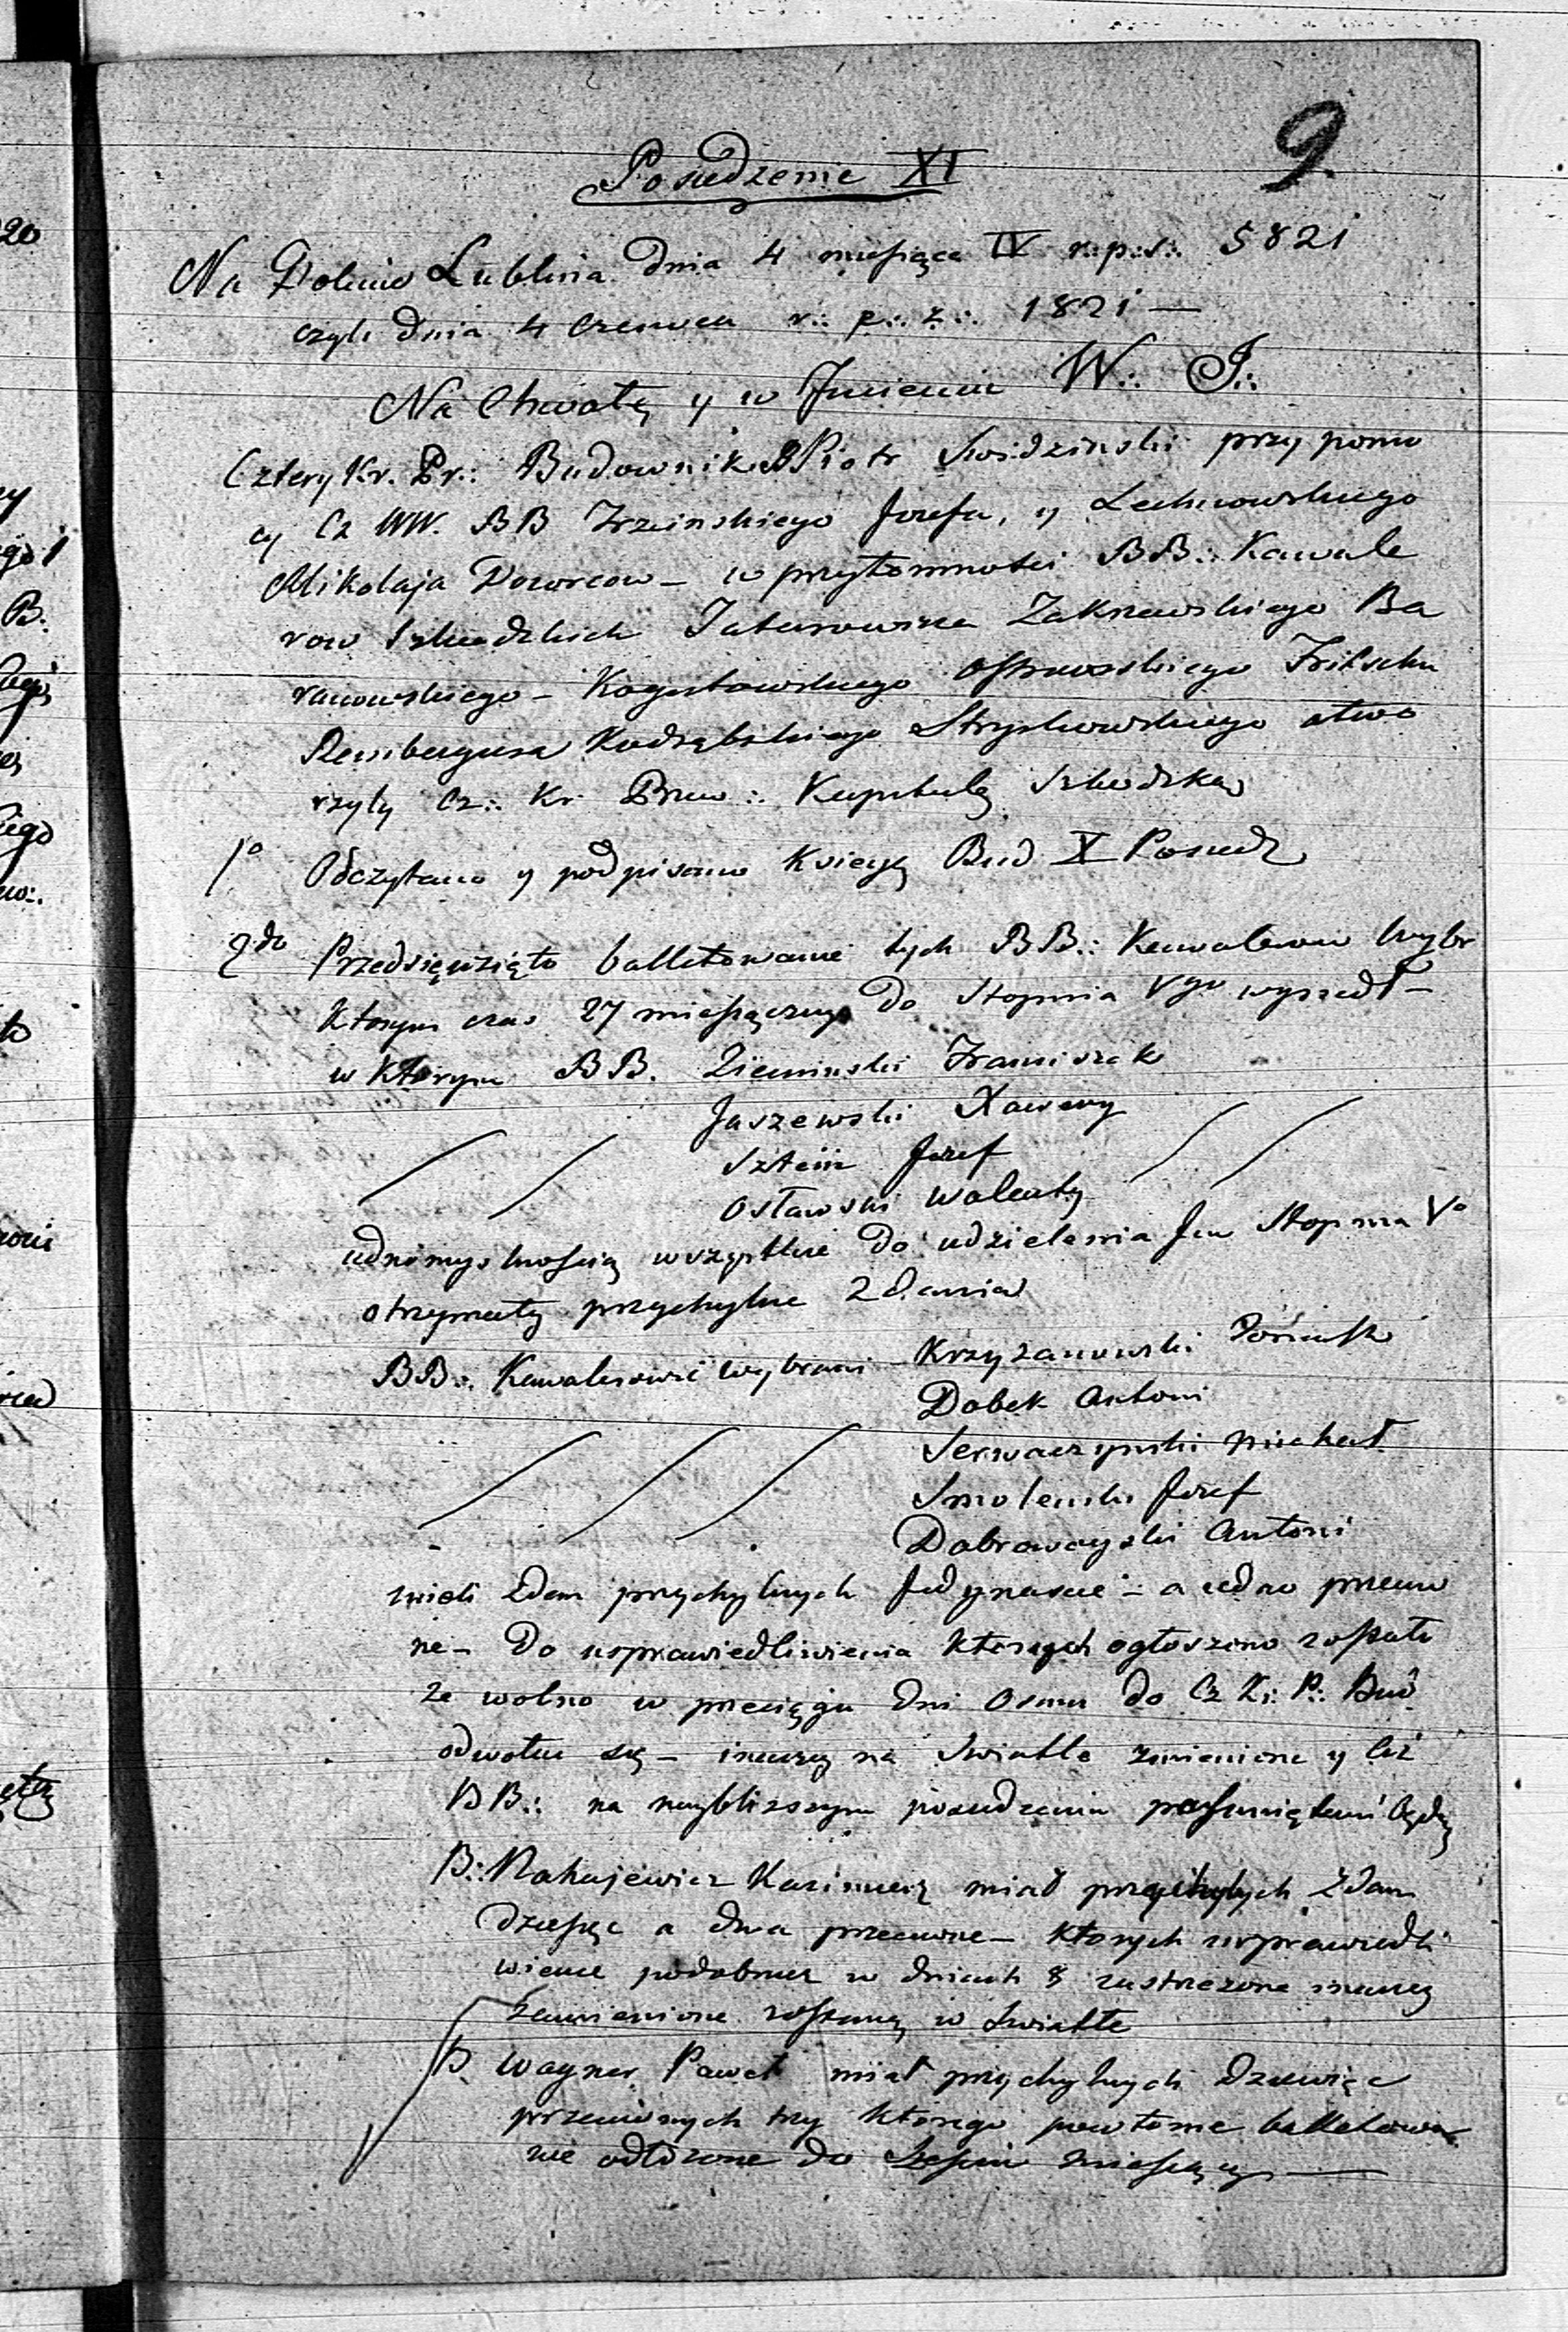 9.
Posiedzenie XI
Na Dolinie Lublina dnia 4 miesiąca IV r∴p∴s∴ 5821
czyli dnia 4 Czerwca r∴ p∴ z∴ 1821 —
Na Chwałę y w Jmieniu W∴ J∴
Cztery Kr. Pr∴ Budownik B Piotr Swidzinski przy pomo
cy Cz WW. BB Trzcinskiego Jozefa, y Lechnowskiego
Mikołaja Dozorcow – w przytomnosci BB∴ Kawale
row Szkodzkich Zakrzewskiego Ba
ranowskiego – Ostrowskiego
Rembergusa Stryikowskiego otwo
rzyły Cz∴ Kr. Praw∴ Kapitułę Szkodzką
1o Odczytano y podpisano Księgę Bud X Posiedz
2do Przedsięwzięto balletowanie tych BB∴ Kawalerow Wybr
Ktorym czas 27 miesięczny do Stopnia Vgo wyszedł –
w Ktorym BB. Zieminski Franciszek
Jaszewski Xawery
Sztein Jozef
Osławski Walenty
iednomyslnoscią wszystkie do udzielenia Jm Stopnia Vo
otrzymały przychylne Zdania
BB∴ Kawalerowie Wybrani – Krzyzanowski
Dobek Antoni
Serwaczynski Michał
Smolenski Jozef
Dobrowoyski Antoni
mieli Zdan przychylnych Jedynascie – a iedno przeciw
ne – Do usprawiedliwienia ktorych ogłoszono zostało
że wolno w przeciągu Dni Osmu do Cz K∴ P∴ Bud
odwołać się – inaczej na Swiatłe zmienione y Ciż
BB∴ na naybliższym posiedzeniu posuniętemi będą
B∴ Makajewicz Kazimierz miał przychylnych Zdan
dziesięc a dwa przeciwne – ktorych usprawiedli
wienie podobnież w dniach 8 zastrzeżone inaczey
zamienione zostaną w Swiatłe
B. Wagner Paweł miał przychylnych Dziewięc
przeciwnych trzy ktorego powtorne balletowa
nie odłożone do Szesciu Miesięcy —